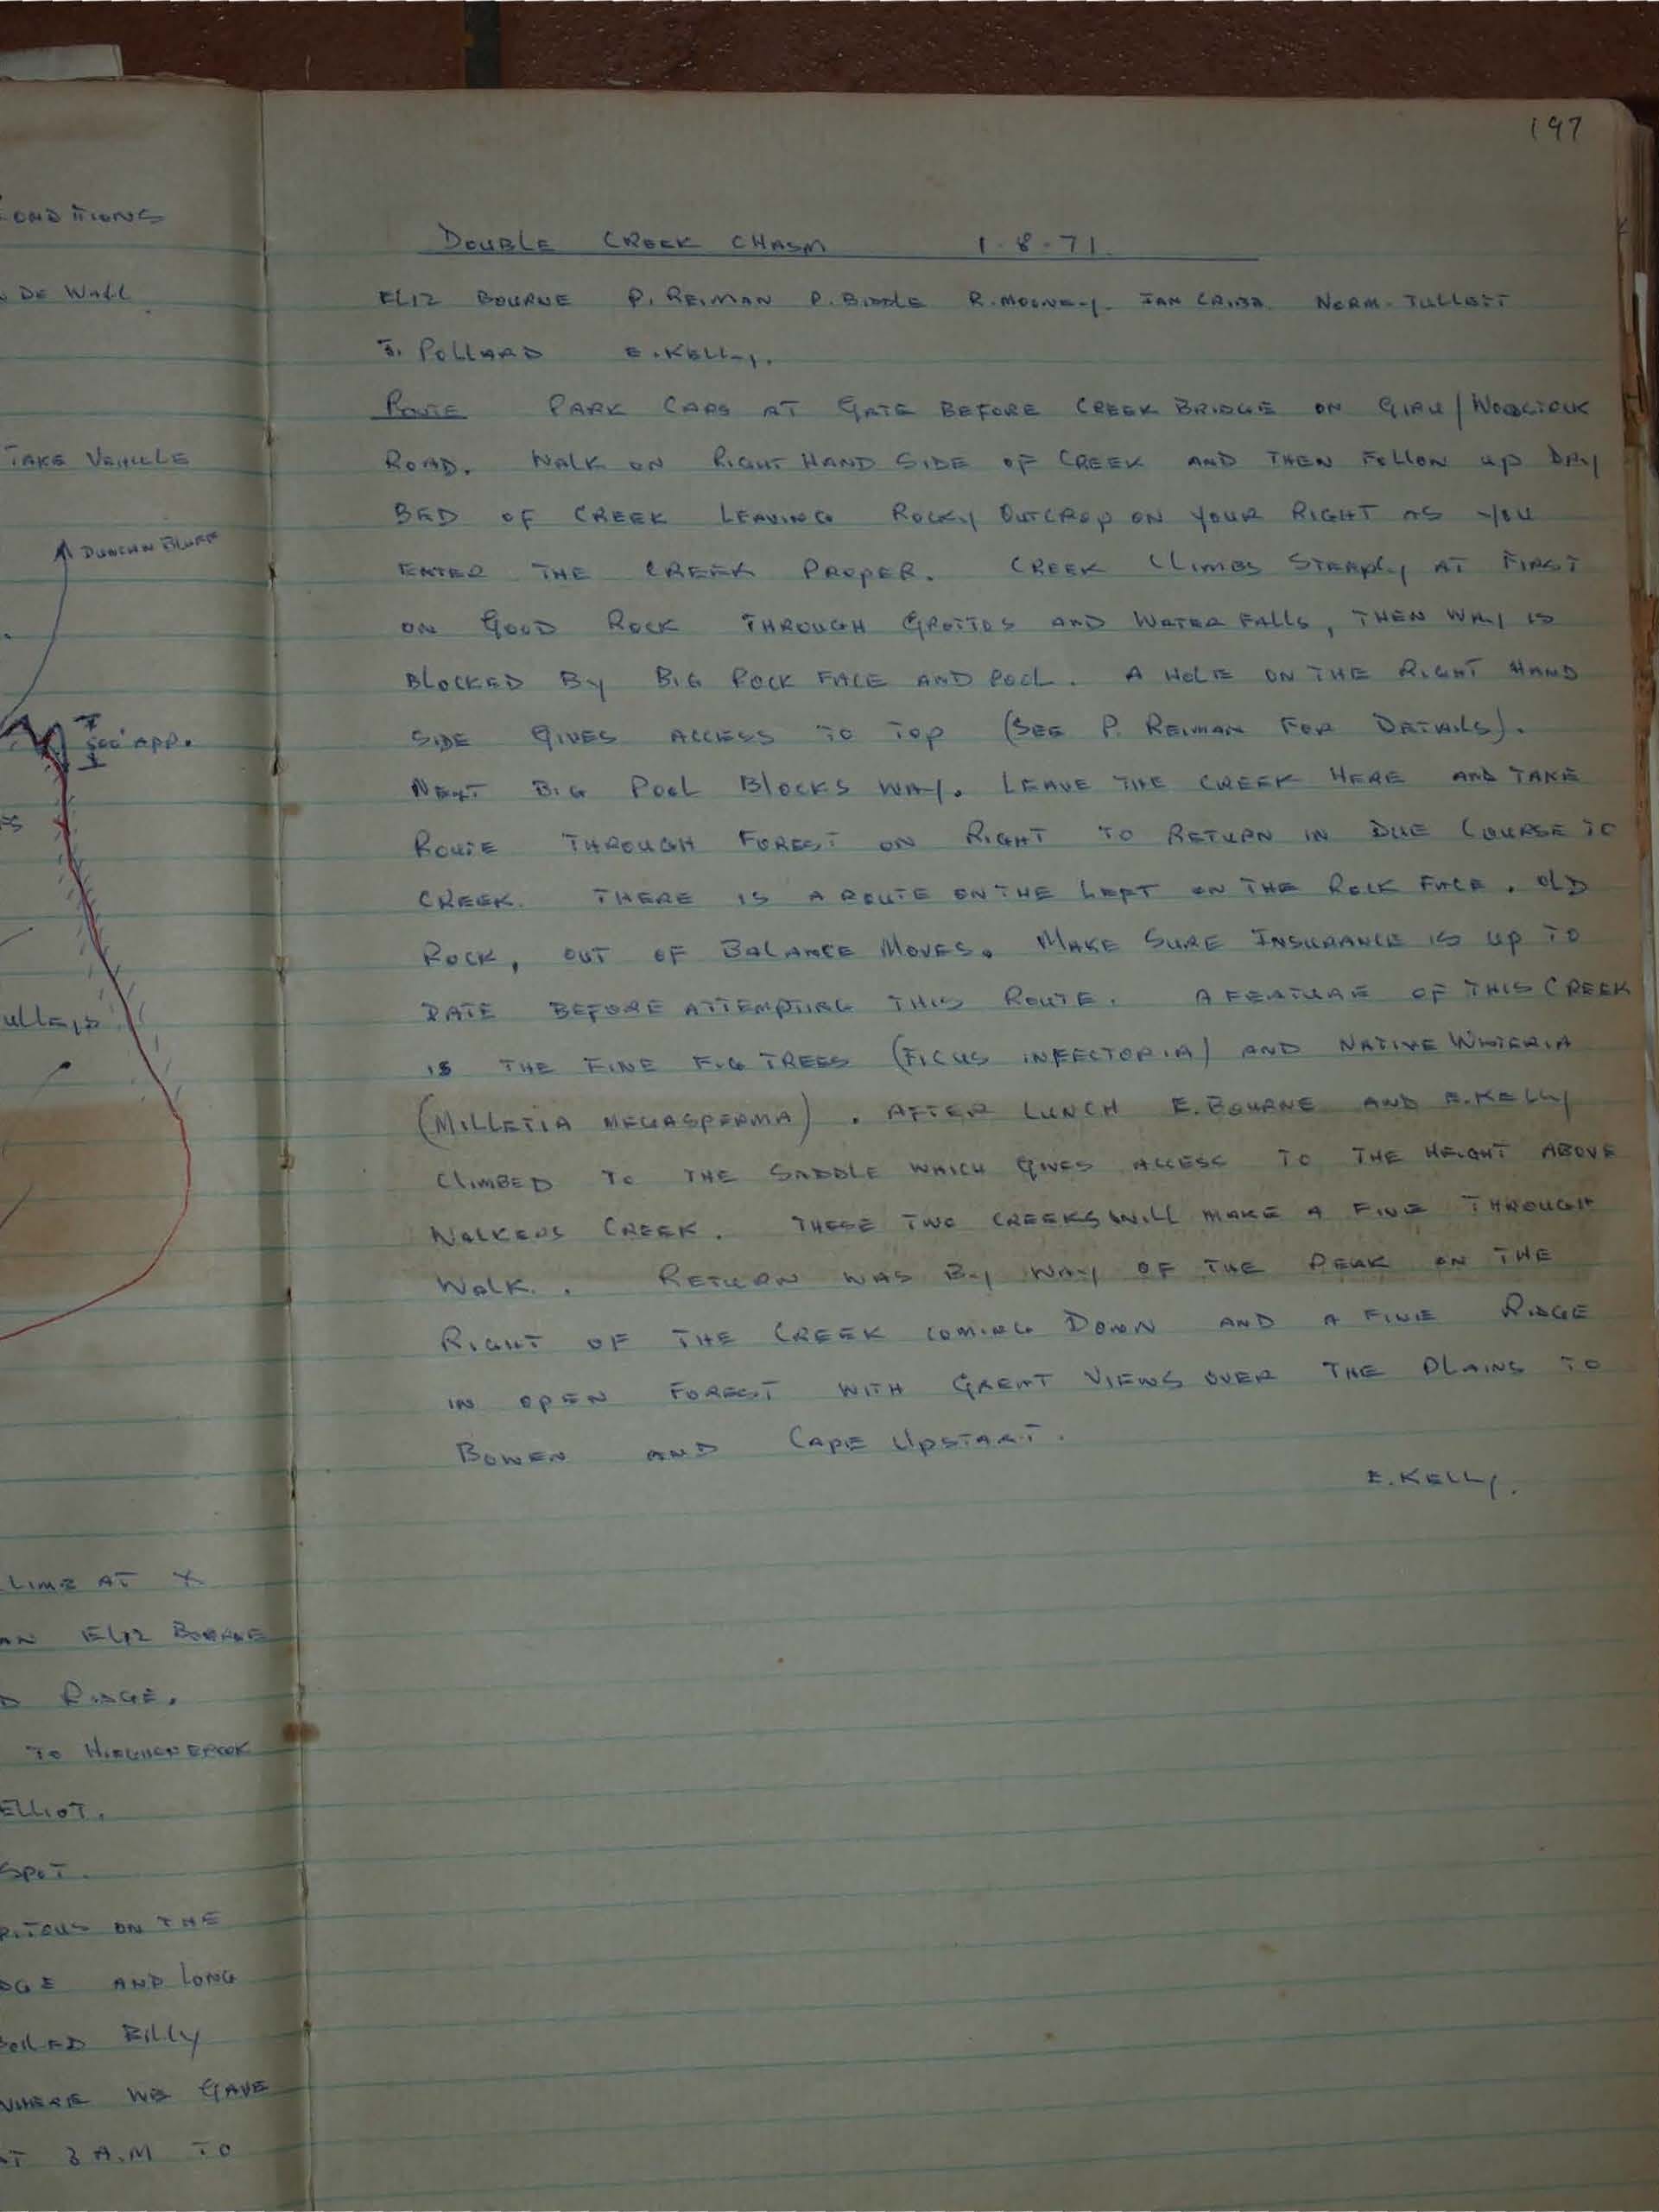 CONDITIONS
DE WALL
TAKE VEHICLE
DUNCAN BLUFF
500' APP.
CLIMB AT X
AN ELIZ BOURNE
D RIDGE.
TO
ELLIOT.
SPOT.
ON THE
AND LONG
BOILED BILLY
WHERE WE GAVE
AT 3 A.M TO
197
DOUBLE CREEK CHASM 1.8.71.
ELIZ BOURNE P. REIMAN P. BIDDLE R. MOONEY. IAN CRIBB. NORM. TULLETT
J. POLLARD E. KELLY.
ROUTE PARK CARS AT GATE BEFORE CREEK BRIDGE ON GIRU/WOODSTOCK
ROAD. WALK ON RIGHT HAND SIDE OF CREEK AND THEN FOLLOW UP DRY
BED OF CREEK LEAVING ROCKY OUTCROP ON YOUR RIGHT AS YOU
ENTER THE CREEK PROPER. CREEK CLIMBS STEEPLY AT FIRST
ON GOOD ROCK THROUGH GROTTOS AND WATER FALLS, THEN WAY IS
BLOCKED BY BIG ROCK FACE AND POOL. A HOLE ON THE RIGHT HAND
SIDE GIVES ACCESS TO TOP (SEE P. REIMAN FOR DETAILS).
NEXT BIG POOL BLOCKS WAY. LEAVE THE CREEK HERE AND TAKE
ROUTE THROUGH FOREST ON RIGHT TO RETURN IN DUE COURSE TO
CREEK. THERE IS A ROUTE ON THE LEFT ON THE ROCK FACE. OLD
ROCK, OUT OF BALANCE MOVES. MAKE SURE INSURANCE IS UP TO
DATE BEFORE ATTEMPTING THIS ROUTE. A FEATURE OF THIS CREEK
IS THE FINE FIG TREES (FICUS INFECTORIA) AND NATIVE WISTERIA
(MILLETIA MEGASPERMA). AFTER LUNCH E. BOURNE AND E. KELLY
CLIMBED TO THE SADDLE WHICH GIVES ACCESS TO THE HEIGHT ABOVE
WALKERS CREEK. THESE TWO CREEKS WILL MAKE A FINE THROUGH
WALK. RETURN WAS BY WAY OF THE PEAK ON THE
RIGHT OF THE CREEK COMING DOWN AND A FINE RIDGE
IN OPEN FOREST WITH GREAT VIEWS OVER THE PLAINS TO
BOWEN AND CAPE UPSTART.
E. KELLY.